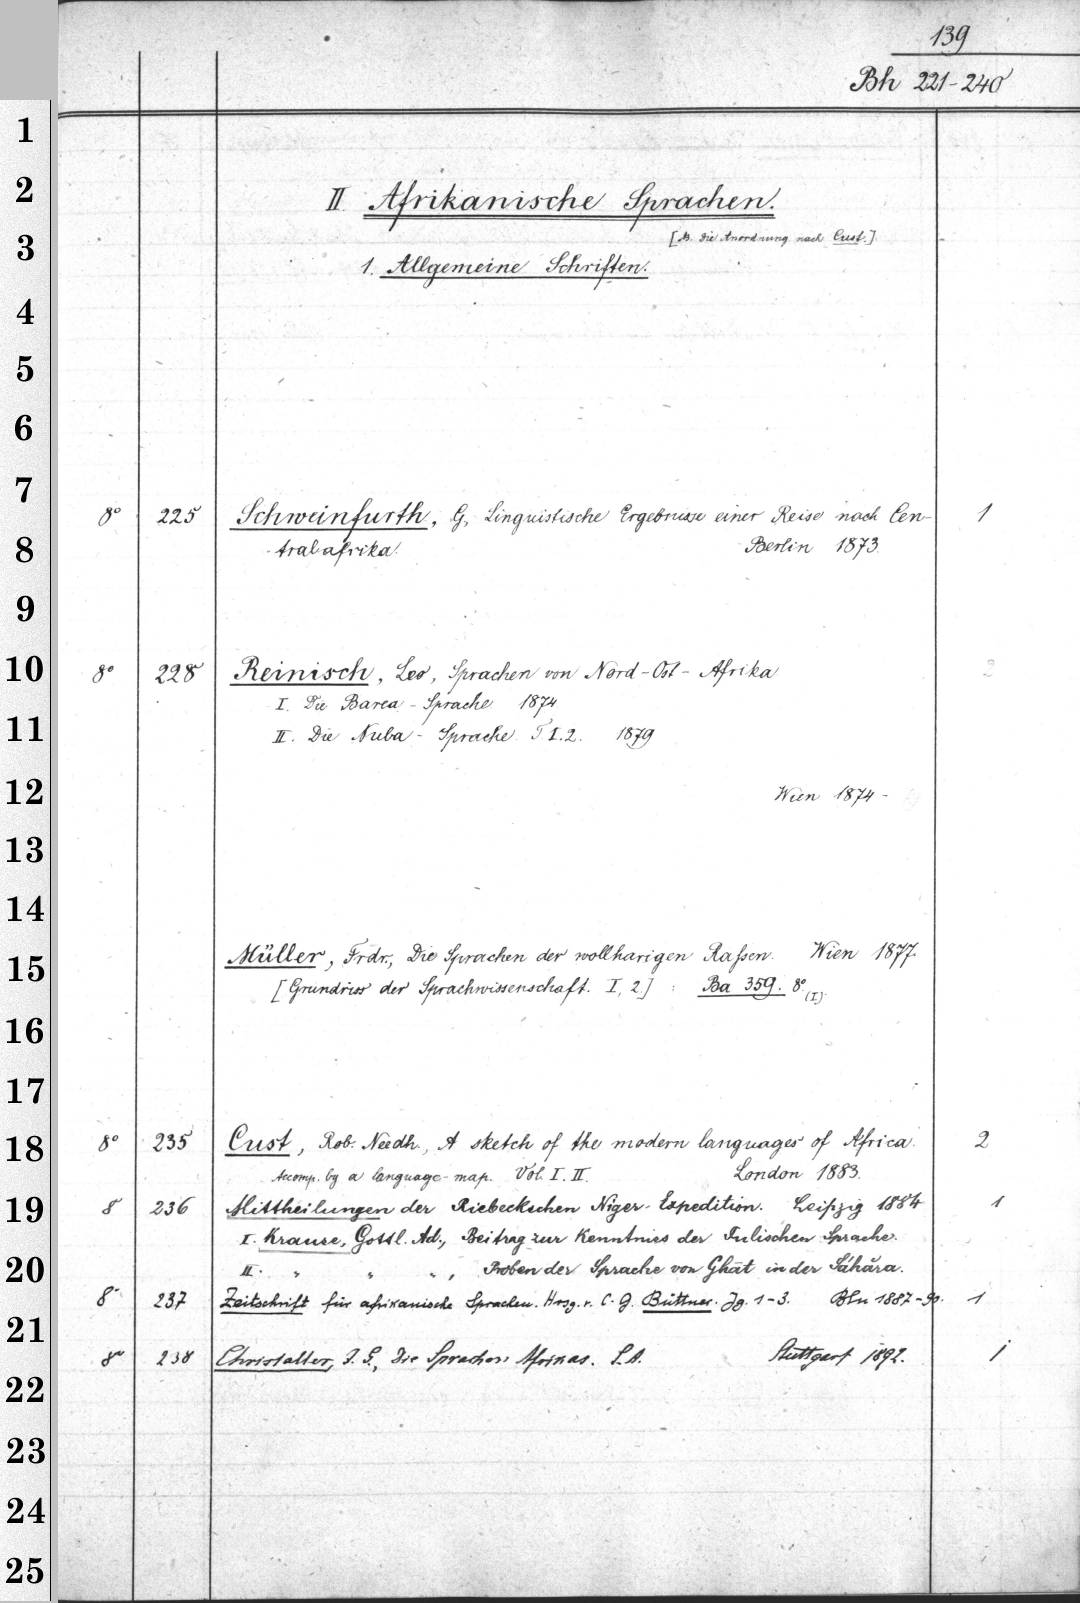 139
Bh 221-240
II. Afrikanische Sprachen.
[NB. Die Anordnung nach Cust.]
1. Allgemeine Schriften.
8° 225 Schweinfurth, G, Linguistische Ergebnisse einer Reise nach Cen- 1
tralafrika. Berlin 1873.
8° 228 Reinisch, Leo, Sprachen von Nord-Ost-Afrika 2
I. Die Barea-Sprache 1874
II. Die Nuba-Sprache T I.2. 1879
Wien 1874-
Müller, Frdr., Die Sprachen der wollharigen Raßen. Wien 1877.
[Grundriss der Sprachwissenschaft. I, 2.] : Ba 359. 8°. (I)
8° 235 Cust, Rob. Needh., A sketch of the modern languages of Africa. 2
Accomp. by a language-map. Vol. I. II. London 1883.
8 236 Mittheilungen der Riebeckschen Niger-Expedition. Leipzig 1884 1
I. Krause, Gottl. Ad., Beitrag zur Kenntniss der Fulischen Sprache.
II. " " " , Proben der Sprache von Ghāt in der Sáhăra.
8° 237 Zeitschrift für afrikanische Sprachen. Hrsg. v. C. G. Büttner. Jg. 1-3. Bln 1887-90. 1
8° 238 Christaller, J. G., Die Sprachen Afrikas. S.A. Stuttgart 1892. 1
1
2
3
4
5
6
7
8
9
10
11
12
13
14
15
16
17
18
19
20
21
22
23
24
25